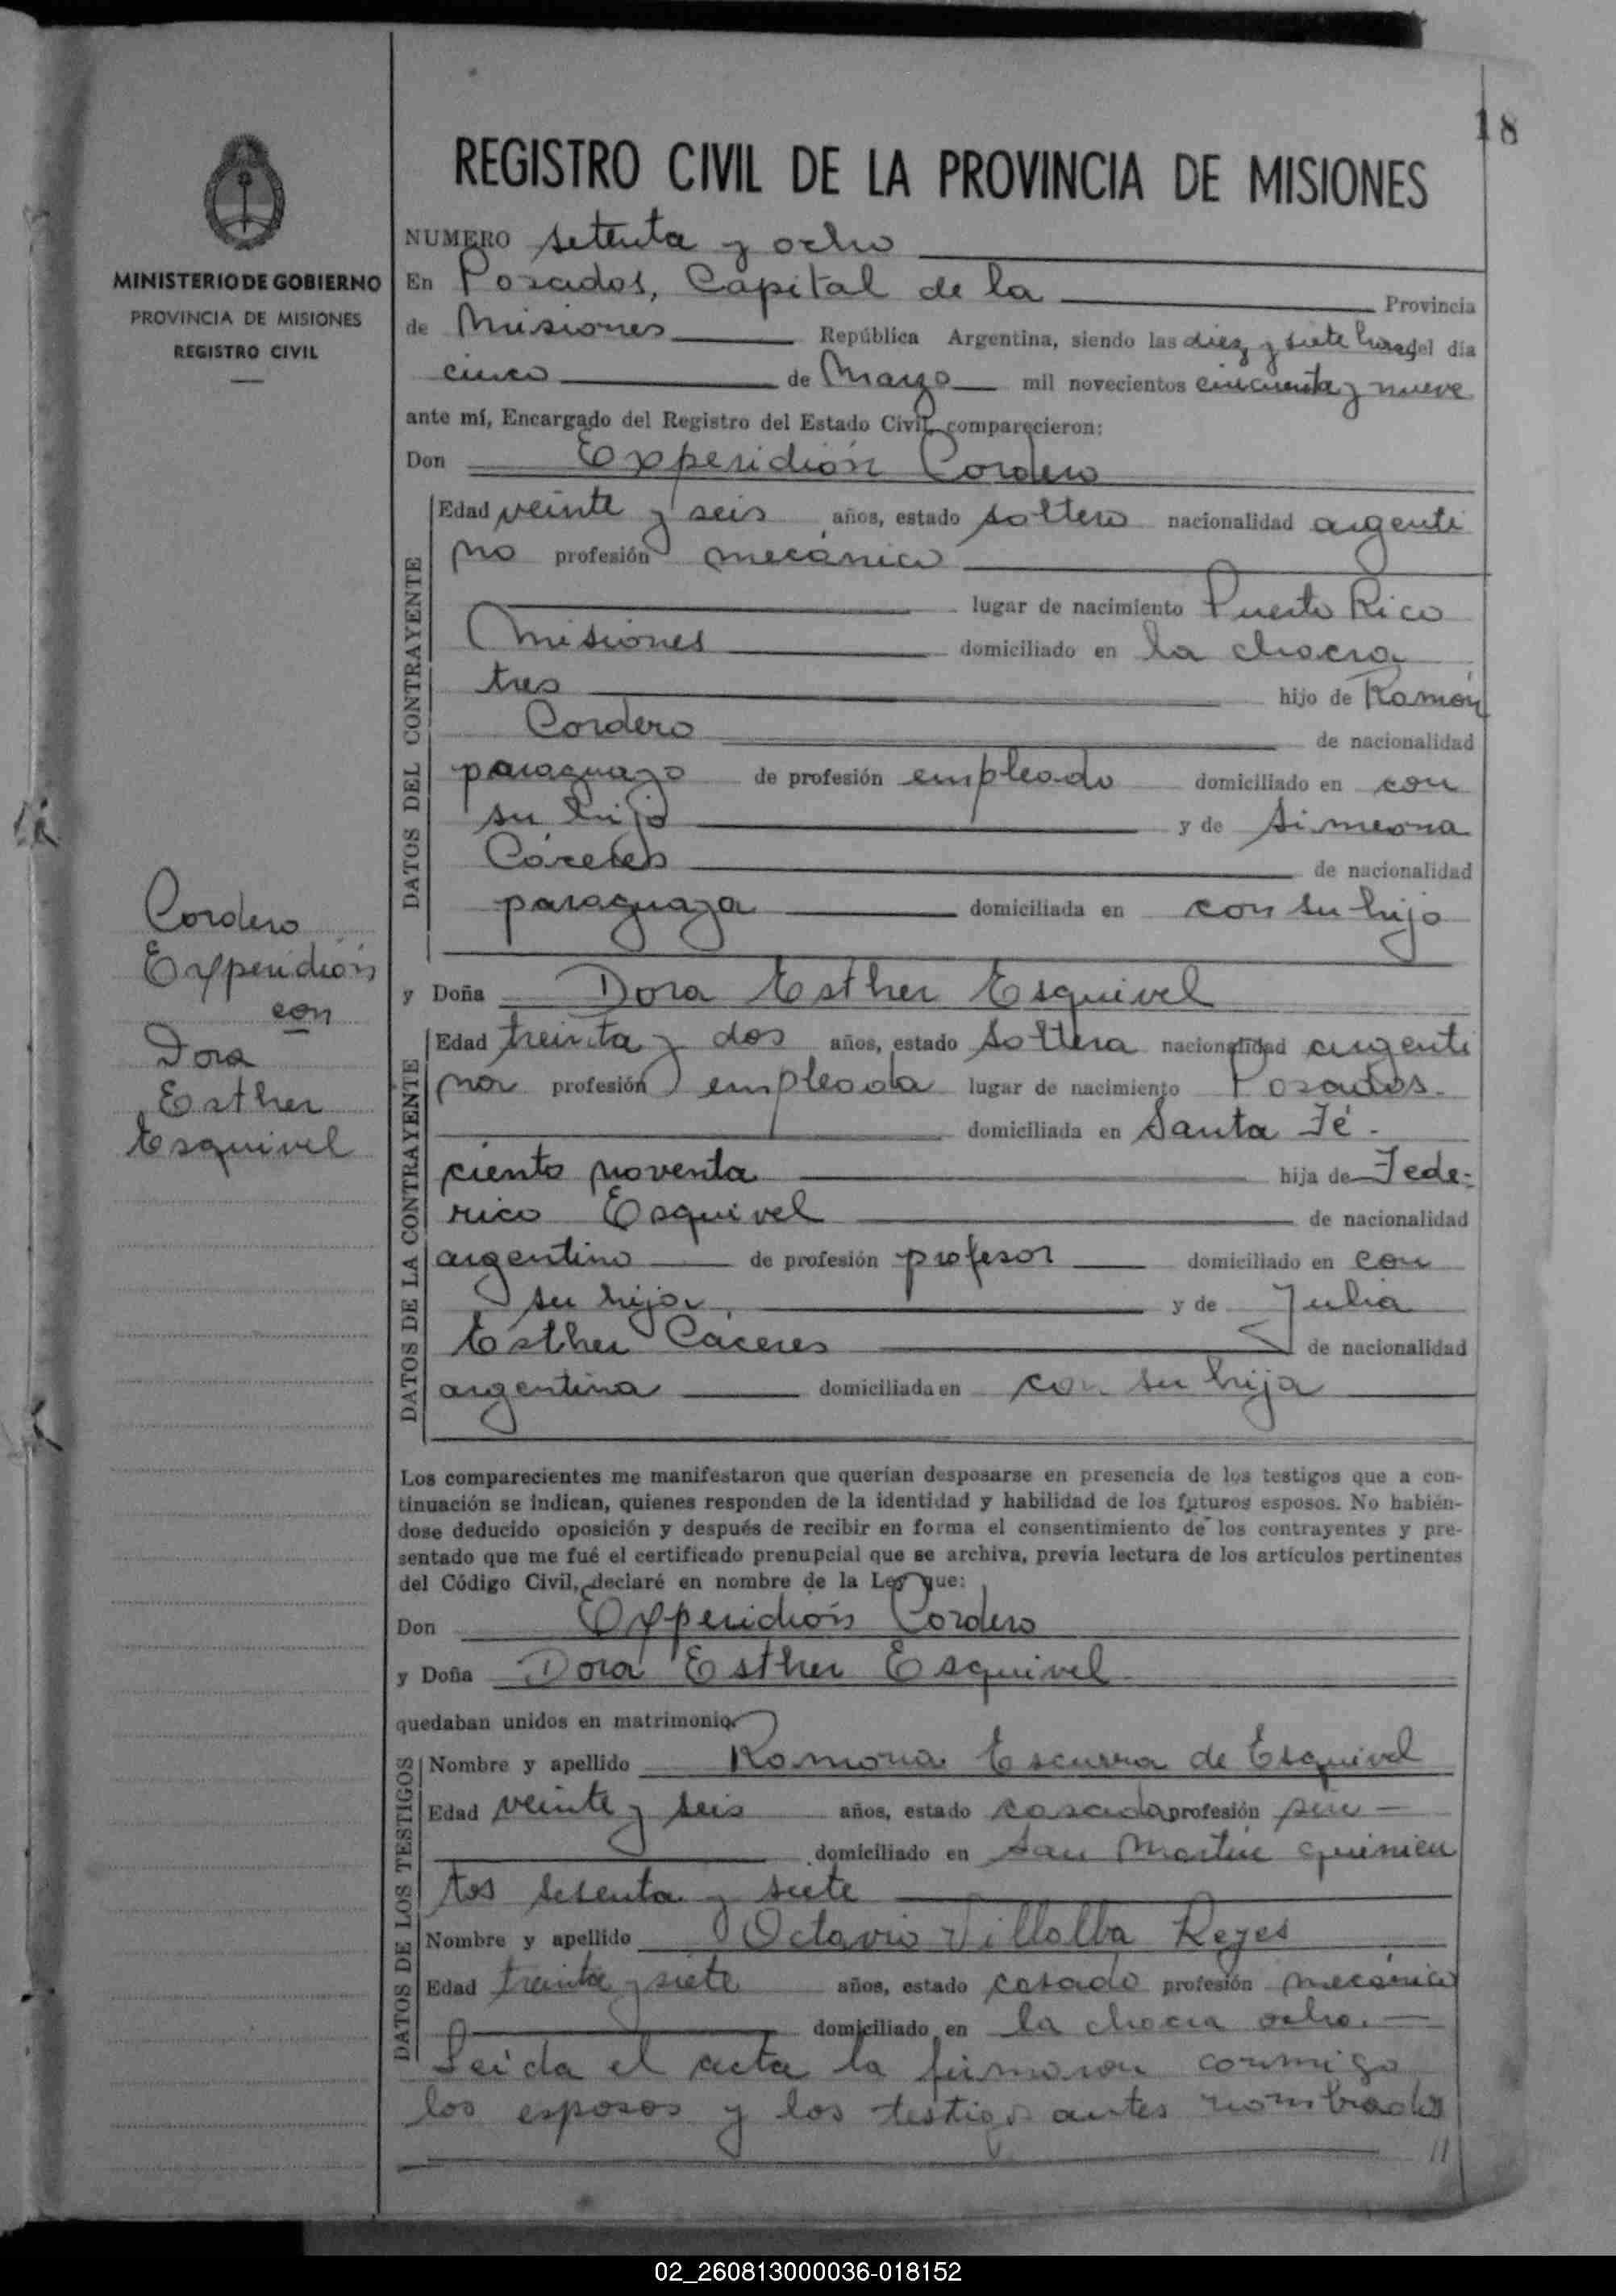 18
REGISTRO CIVIL DE LA PROVINCIA DE MISIONES
MINISTERIO DE GOBIERNO
PROVINCIA DE MISIONES
REGISTRO CIVIL
NUMERO setenta y ocho
En Posadas, Capital de la Provincia
de Misiones República Argentina, siendo las diez y siete horas del día
cinco de Marzo mil novecientos cincuenta y nueve
ante mí, Encargado del Registro del Estado Civil, comparecieron:
Don Experidión Cordero
DATOS DEL CONTRAYENTE
Edad veinte y seis años, estado soltero nacionalidad argenti
no profesión mecánico
lugar de nacimiento Puerto Rico
Misiones domiciliado en la chacra
tres hijo de Ramón
Cordero de nacionalidad
paraguayo de profesión empleado domiciliado en con
su hijo y de Simeona
Cáceres de nacionalidad
paraguaya domiciliada en con su hijo
Cordero
Experidión
con
Dora
Esther
Esquivel
y Doña Dora Esther Esquivel
DATOS DE LA CONTRAYENTE
Edad treinta y dos años, estado soltera nacionalidad argenti
na profesión empleada lugar de nacimiento Posadas.
domiciliada en Santa Fé.
ciento noventa hija de Fede-
rico Esquivel de nacionalidad
argentino de profesión profesor domiciliado en con
su hija y de Julia
Esther Cáceres de nacionalidad
argentina domiciliada en con su hija
Los comparecientes me manifestaron que querían desposarse en presencia de los testigos que a con-
tinuación se indican, quienes responden de la identidad y habilidad de los futuros esposos. No habién-
dose deducido oposición y después de recibir en forma el consentimiento de los contrayentes y pre-
sentado que me fué el certificado prenupcial que se archiva, previa lectura de los artículos pertinentes
del Código Civil, declaré en nombre de la Ley que:
Don Experidión Cordero
y Doña Dora Esther Esquivel
quedaban unidos en matrimonio.
DATOS DE LOS TESTIGOS
Nombre y apellido Ramona Escurra de Esquivel
Edad veinte y seis años, estado casada profesión sin —
domiciliado en San Martín quinien
tos sesenta y siete
Nombre y apellido Octavio Villalba Reyes
Edad treinta y siete años, estado casado profesión mecánico
domiciliado en la chacra ocho. —
Leída el acta la firmaron conmigo
los esposos y los testigos antes nombrados
//
02_260813000036-018152